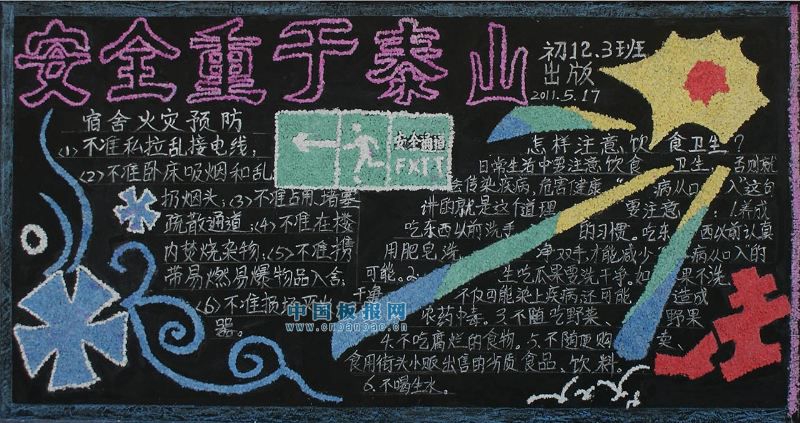 安全重于泰山
初12.3班
出版
2011.5.17
宿舍火灾预防
(1)不准私拉乱接电线;
(2)不准卧床吸烟和乱
扔烟头;(3)不准占用、堵塞
疏散通道;(4)不准在楼
内焚烧杂物;(5)不准携
带易燃易爆物品入舍;
(6)不准损坏灭火
器。
安全通道
EXIT
怎样注意饮食卫生?
日常生活中要注意饮食卫生,否则就
会传染疾病,危害健康"病从口入"这句
讲的就是这个道理 要注意:1.养成
吃东西以前洗手的习惯。吃东西以前认真
用肥皂洗净双手,才能减少"病从口入"的
可能。2.生吃瓜果要洗干净。如果不洗
干净不仅可能染上疾病,还可能造成
农药中毒。3.不随吃野菜、野果
4.不吃腐烂的食物。5.不随便购买、
食用街头小贩出售的劣质食品、饮料。
6.不喝生水。
中国板报网
www.cnbanbao.cn